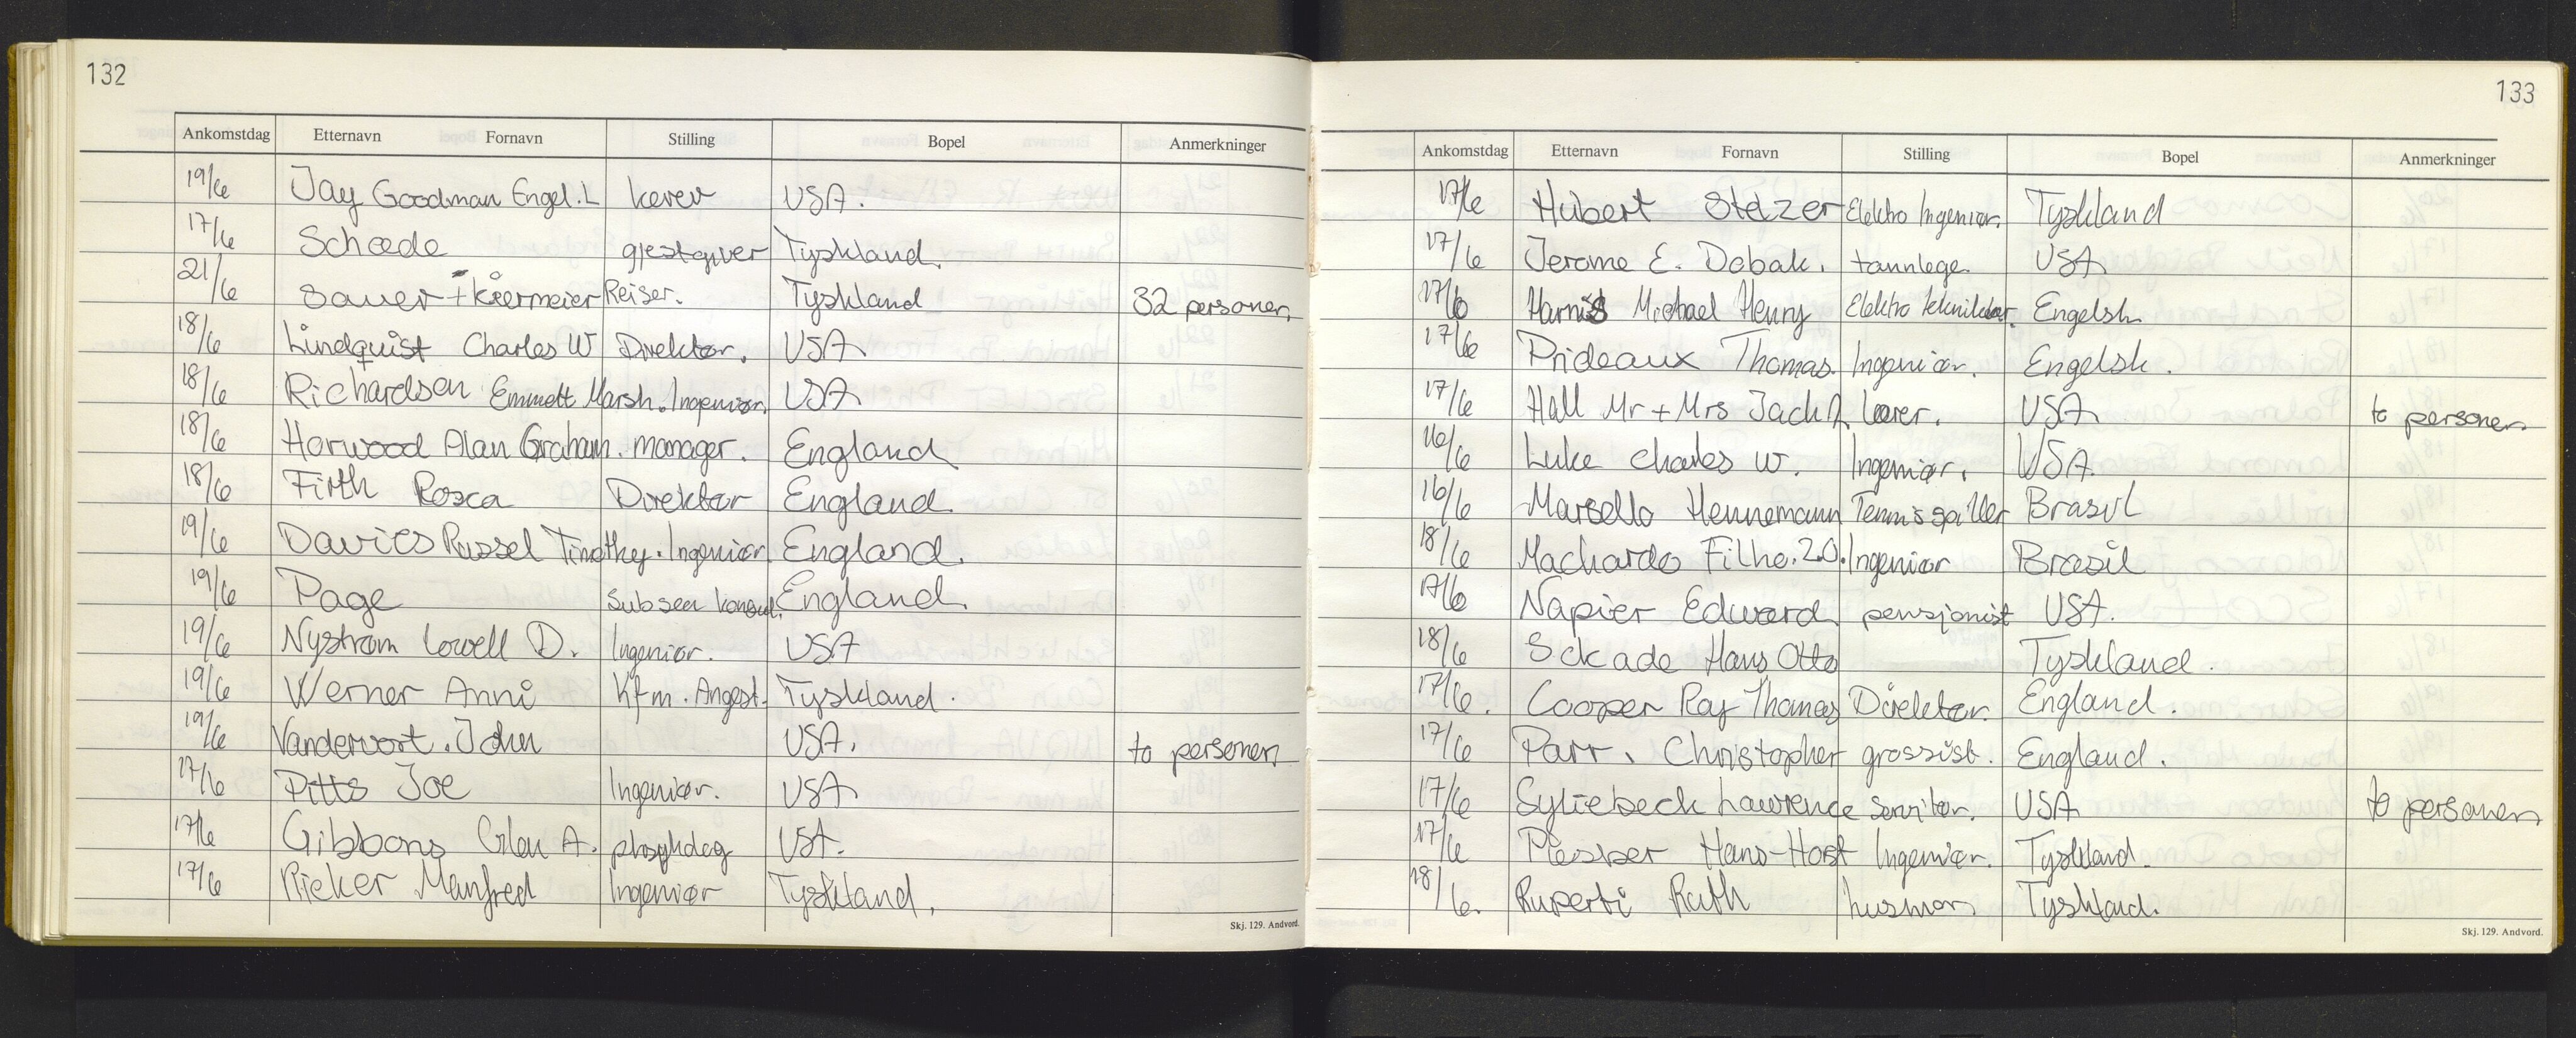 132
Ankomstdag Etternavn Fornavn Stilling Bopel Anmerkninger
19/6 Jay Goodman Engel. L USA.
17/6 Schade gjestgiver Tyskland.
21/6 Sauer + Kiermeier Reiser. Tyskland 32 personer
18/6 Lindquist Charles W Direktør. USA
18/6 Richardson Emmett Marsh. Ingeniør. USA
18/6 Horwood Alan Graham. manager. England
18/6 Firth Rosca Direktør England.
19/6 Davies Russel Timothy. Ingeniør. England.
19/6 Page Subsea konsul. England.
19/6 Nystrøm Lowell D. Ingeniør. USA
19/6 Werner Anni Kfm. Angest. Tyskland.
19/6 Vandervort. John USA. to personer
17/6 Pitts Joe Ingeniør. USA
17/6 Gibbons Glen A. USA.
17/6 Rieker Manfred Ingeniør Tyskland.
Skj. 129. Andvord.
133
Ankomstdag Etternavn Fornavn Stilling Bopel Anmerkninger
17/6 Hubert Stelzer Elektro Ingeniør. Tyskland
17/6 Jerome E. Dobak. tannlege. USA
17/6 Michael Henry Elektro tekniker. Engelsk
17/6 Prideaux Thomas. Ingeniør. Engelsk.
17/6 Hall Mr + Mrs Jack A. lærer. USA to personer
16/6 Luke Charles W. Ingeniør. USA.
16/6 Marsello Hennemann Tennisspiller Brasil
18/6 Machardo Filho. 2.0. Ingeniør Brasil
17/6 Napier Edward pensjonist USA.
18/6 Sckade Hans Otto Tyskland.
17/6. Cooper Ray Thomas Direktør. England.
17/6 Parr. Christopher grossist. England.
17/6 Syliebeck Lawrence Servitør. USA to personer
17/6 Piesper Hans-Horst Ingeniør. Tyskland.
18/6. Ruperti Ruth husmor Tyskland.
Skj. 129. Andvord.